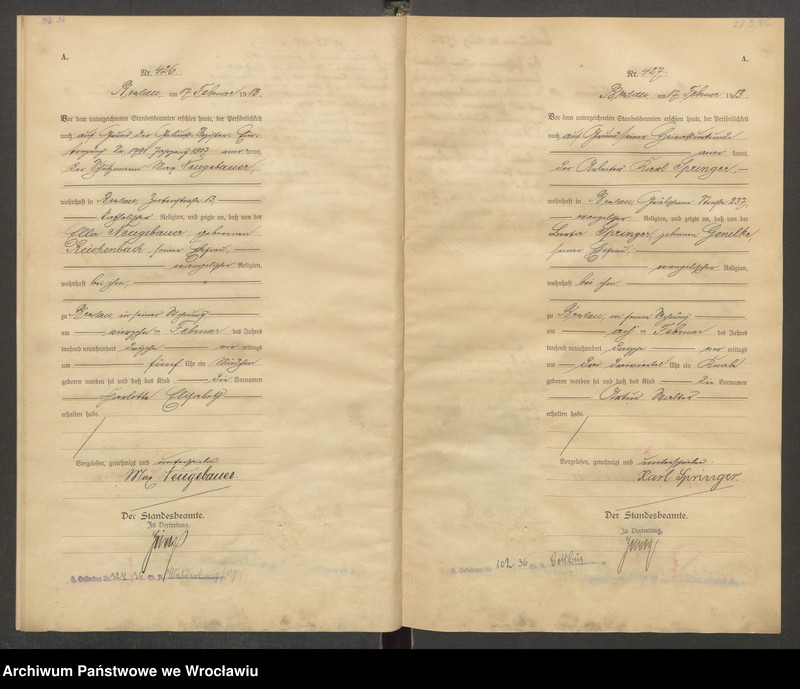 A.
Nr. 426
Breslau am 17 Februar 1913
Vor dem unterzeichneten Standesbeamten erschien heute, der Persönlichkeit
nach auf Grund der Geburts Register
kannt,
der Max Neugebauer,
wohnhaft in Breslau, 13
katholischer Religion, und zeigte an, daß von der
Ella Neugebauer, geborenen
Reichenbach, seiner Ehefrau,
evangelischer Religion,
wohnhaft bei ihm,
zu Breslau in seiner Wohnung
am Februar des Jahres
tausend neunhundert dreizehn vor mittags
um fünf Uhr ein Mädchen
geboren worden sei und daß das Kind die Vornamen
Charlotte Elisabeth
erhalten habe.
Vorgelesen, genehmigt und unterschrieben
Max Neugebauer.
Der Standesbeamte.
In Vertretung
A.
Nr. 427
Breslau am 17 Februar 1913
Vor dem unterzeichneten Standesbeamten erschien heute, der Persönlichkeit
nach auf Grund seiner Heiratsurkunde
kannt,
der Arbeiter Karl Springer,
wohnhaft in Breslau, Gräbschener Straße 237,
evangelischer Religion, und zeigte an, daß von der
Springer, geborenen
seiner Ehefrau,
evangelischer Religion,
wohnhaft bei ihm,
zu Breslau in seiner Wohnung
am acht Februar des Jahres
tausend neunhundert dreizehn vor mittags
um drei dreiviertel Uhr ein Knabe
geboren worden sei und daß das Kind die Vornamen
Artur Walter
erhalten habe.
Vorgelesen, genehmigt und unterschrieben
Karl Springer.
Der Standesbeamte.
In Vertretung
102 36 Cottbus
Archiwum Państwowe we Wrocławiu